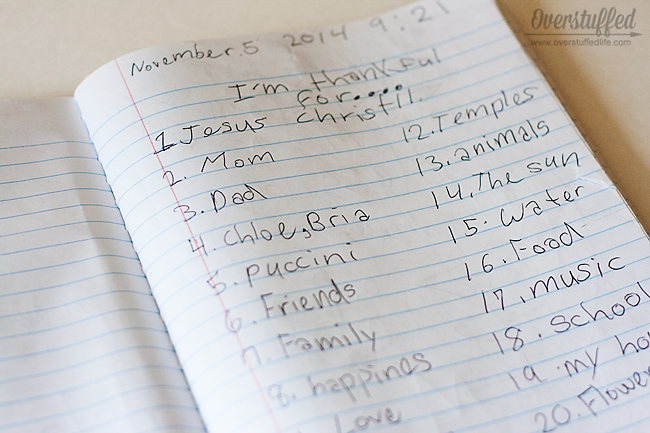 Overstuffed
www.overstuffedlife.com
November 5 2014 9:21
I'm thankful
for....
1. Jesus Christ!!.
2. Mom
3. Dad
4. Chloe, Bria
5. puccini
6. Friends
7. Family
8. happines
Love
12. Temples
13. animals
14. The sun
15. water
16. Food
17. music
18. school
19. my
20. Flower